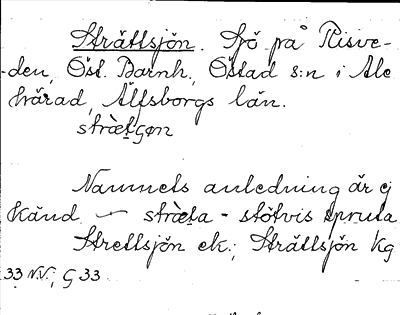 Strättsjön. Sjö på Risve-
den, Öst. Barnh., Östad s:n i Ale
härad, Älfsborgs län.
stræ̀tʃøn
Namnets anledning är ej
känd. — stræ̀ta - stötvis spruta
Strettsjön ek.; Strättsjön Kg
33 N.V., G 33